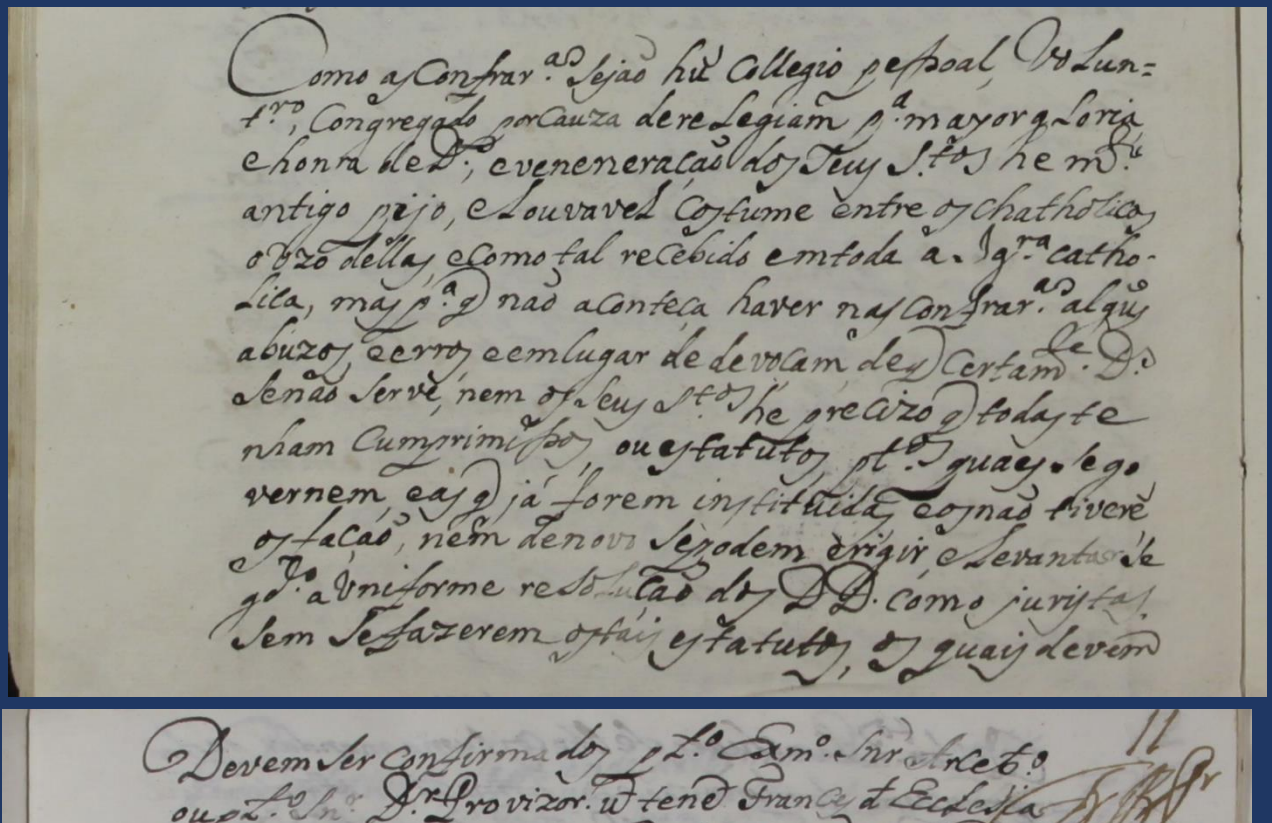 Como as Confrar.as Sejaõ hũ Collegio peſsoal, Volun=
tr.o, Congregado por Cauza de reLegiam p.a mayor gLoria,
e honra de D.s, e veneneraçaõ dos Seus S.tos he m.to
antigo pijo, e Louvavel Costume entre os Chatholicos
o Vzo dellas, e Como tal recebido em toda a Igr.a catho-
Lica, mas p.a q naõ aconteça haver nas Confrar.as algũs
abuzos, e erros e em lugar de devoçam, de q Certam.te D.s
Se naõ Serve, nem os Seus S.tos he precizo q todas te
nham Cumprimiſsos, ou estatutos, pl.os quaes Se go
vernem, e as q já forem instituidas, e os naõ tiverẽ
os façaõ, nem de novo Se podem erigir, e Levantar Se
gd.o a Vniforme resoLuçaõ dos DD. Como juristas
Sem Se fazerem os tais estatutos, os quais devem
11
Devem Ser Confirmados pl.o Exm.o Snr Arceb.o
ou pl.o Snr. Dr. Provizor. ut tenet Franc. d Ecclesia